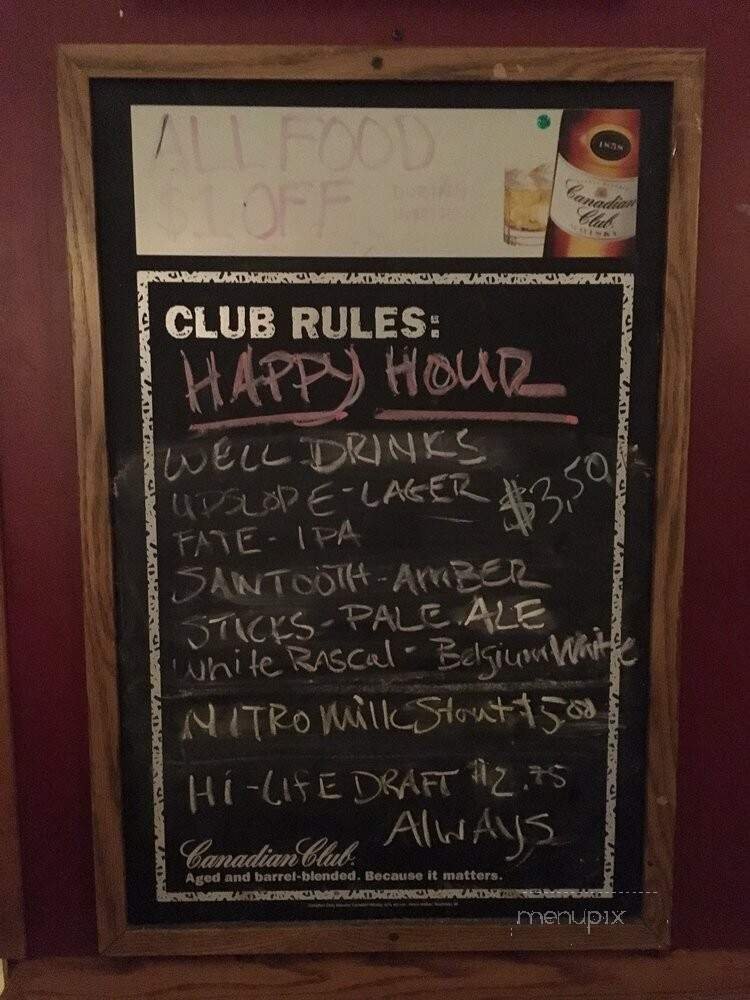 ALL FOOD
$1 OFF
DURING
1858
Canadian
Club
WHISKY
CLUB RULES:
HAPPY HOUR
WELL DRINKS
UPSLOPE-LAGER $3.50
FATE- IPA
SAWTOOTH-AMBER
STICKS-PALE ALE
White RASCAL- Belgium White
NITRO Milk Stout $5.00
Hi-LIFE DRAFT $2.75
AlWAYS
Canadian Club.
Aged and barrel-blended. Because it matters.
menupix